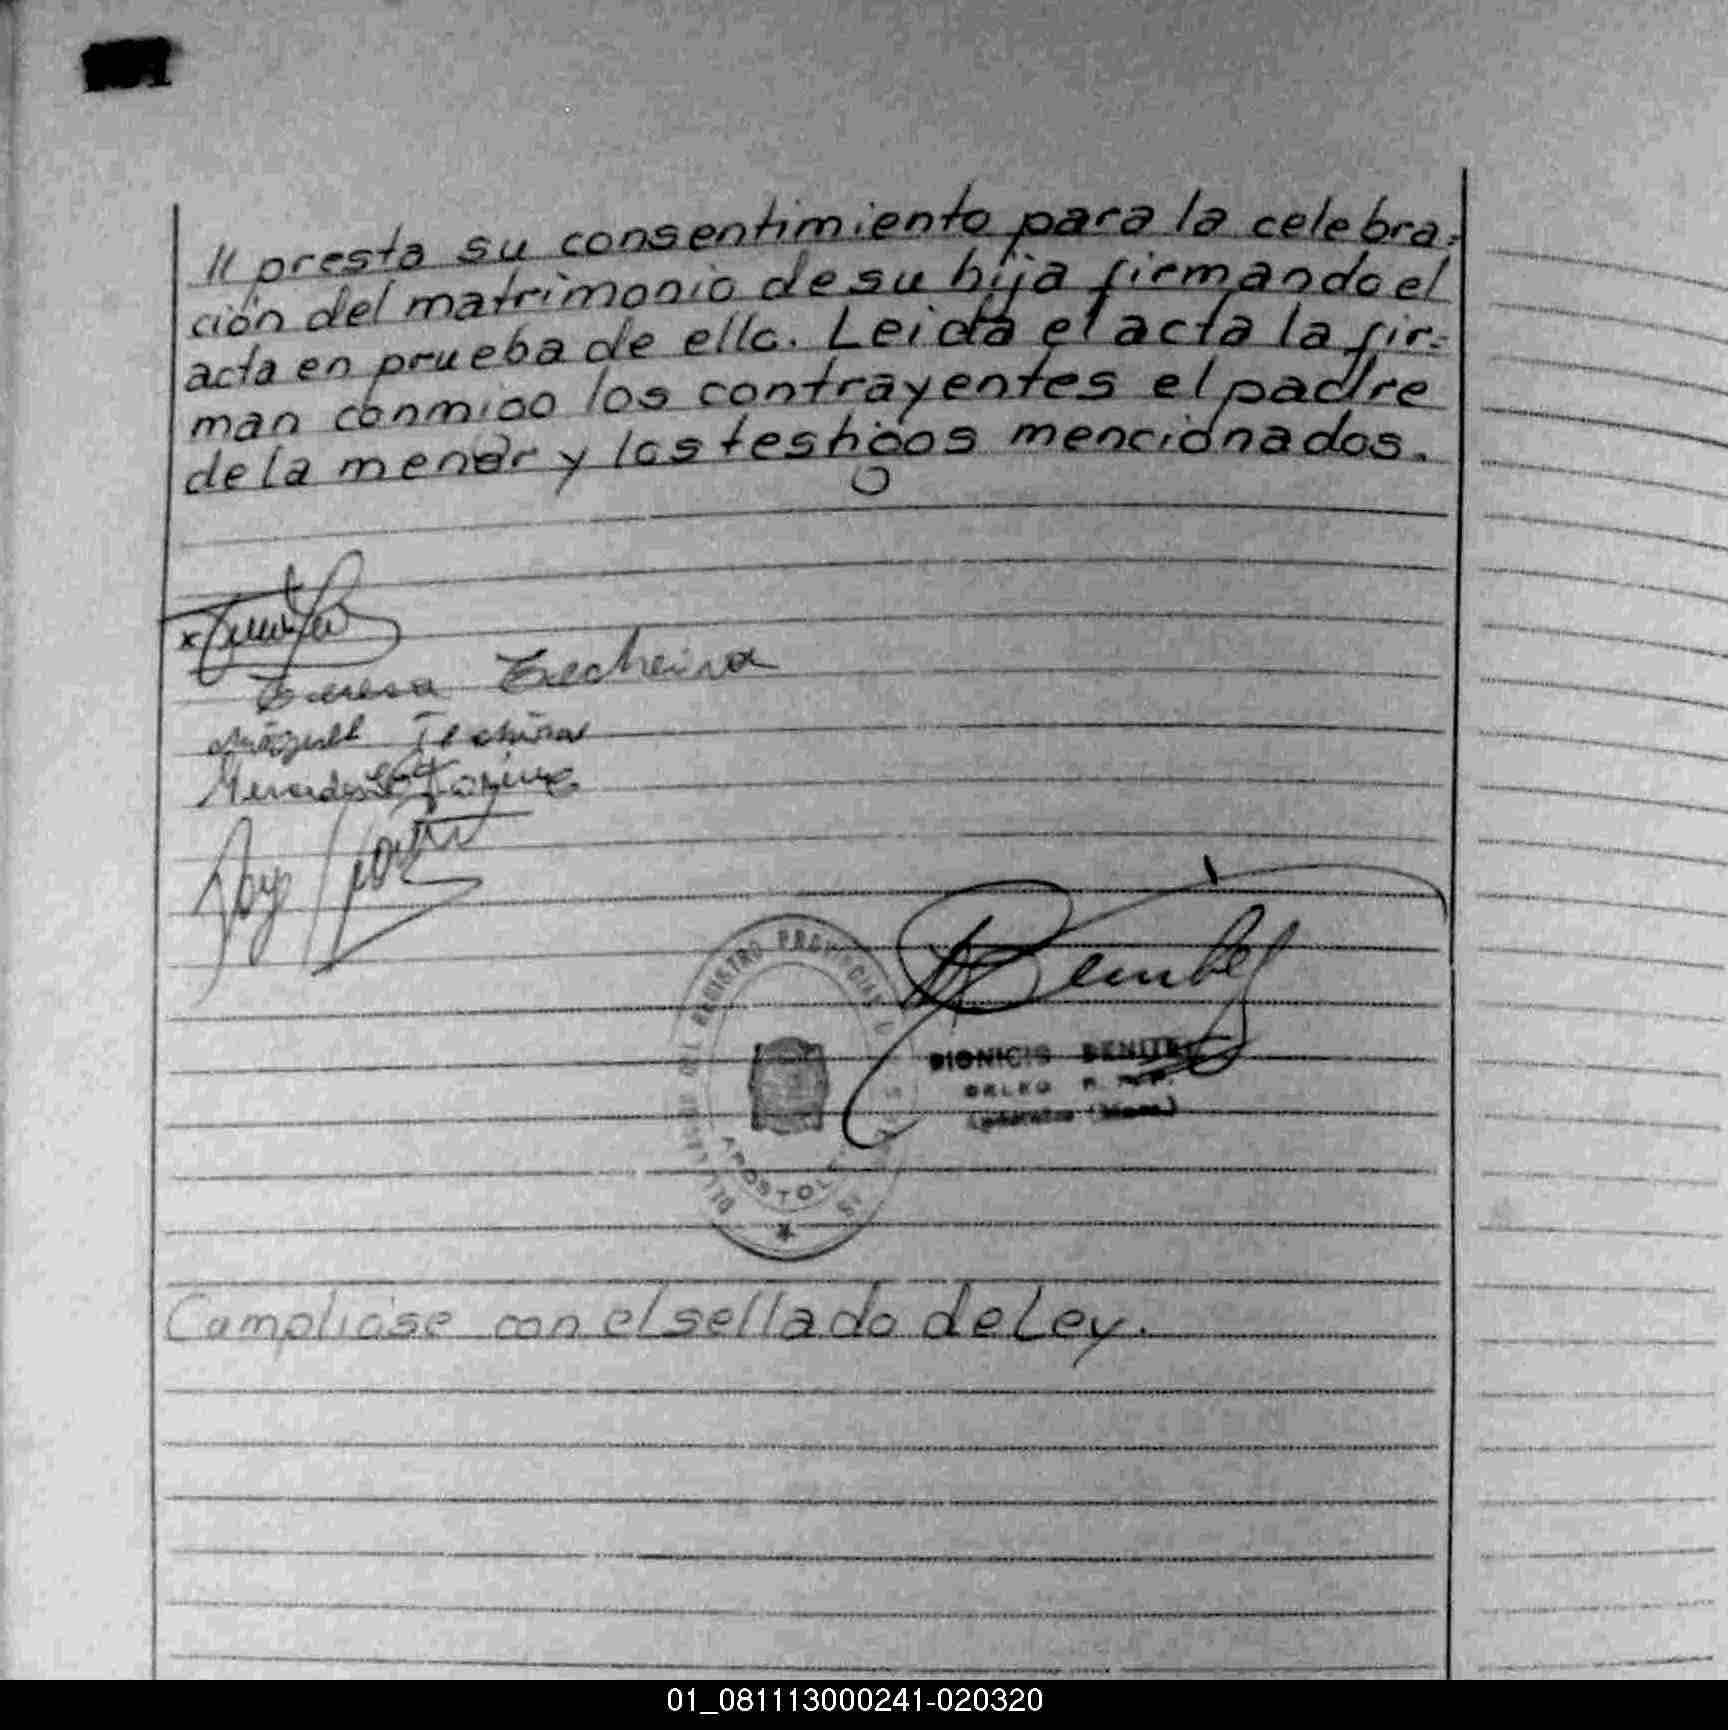 // presta su consentimiento para la celebra=
ción del matrimonio de su hija firmando el
acta en prueba de ello. Leida el acta la fir=
man conmigo los contrayentes el padre
de la menor y los testigos mencionados.
Teresa Techeira
Miguel Techeira
Mercedes
REGISTRO PROVINCIAL
APOSTOLES
DIONICIO BENITEZ
DELEG R. P. P.
Apostoles (Mnes.)
Cumplióse con el sellado de Ley.
01_081113000241-020320